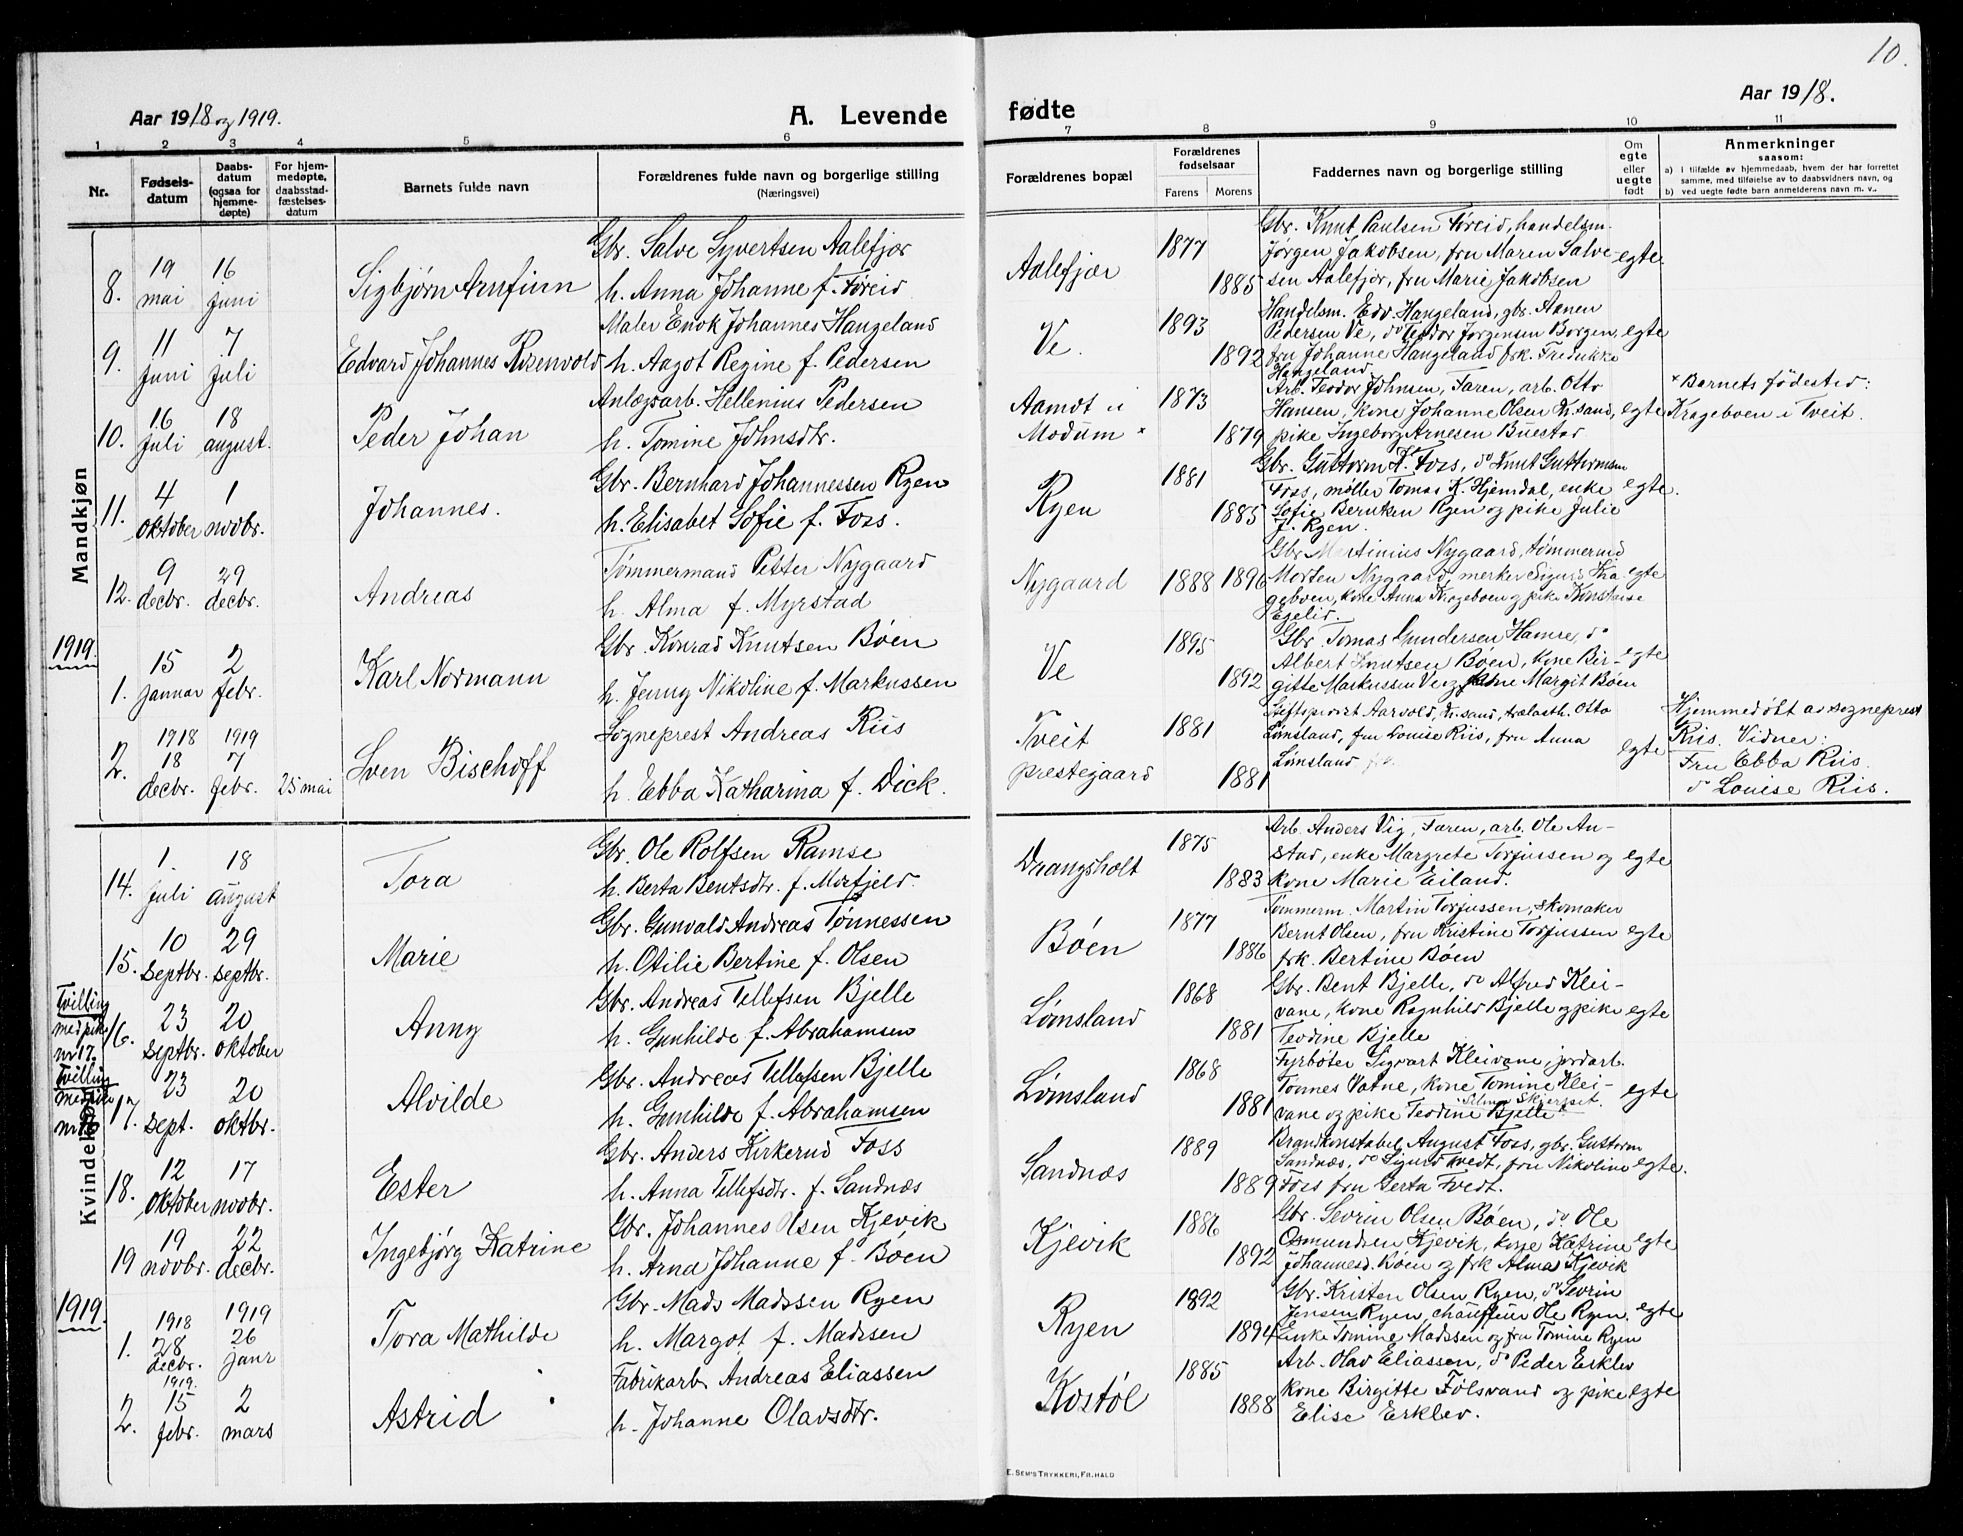 10.
Aar 1918 og 1919.
A. Levende fødte
Aar 1918.
1 2 3 4 5 6 7 8 9 10 11
Nr.
Fødsels-
datum
Daabs-
datum
(ogsaa for
hjemme-
døpte)
For hjem-
medøpte,
daabsstad-
fæstelses-
datum
Barnets fulde navn
Forældrenes fulde navn og borgerlige stilling
(Næringsvei)
Forældrenes bopæl
Forældrenes
fødselsaar
Farens Morens
Faddernes navn og borgerlige stilling
Om
egte
eller
uegte
født
Anmerkninger
saasom:
a) i tilfælde av hjemmedaab, hvem der har forrettet
samme, med tilføielse av to daabsvidners navn, og
b) ved uegte fødte barn anmelderens navn m. v..
Mandkjøn
8. 19 mai 16 juni Sigbjørn Arnfinn
Gbr. Salve Syvertsen Aalefjær
h. Anna Johanne f. Føreid
Aalefjær 1877 1885
Gbr. Knut Paulsen Føreid, handelsm.
Jørgen Jakobsen, fru Maren Salve-
sen Aalefjær, fru Marie Jakobsen
egte.
9. 11 juni 7 juli Edvard Johannes Rosenvold
Maler Enok Johannes Hangeland
h. Aagot Regine f. Pedersen
Ve. 1893 1892
Handelsm. Edv. Hangeland, gbr. Aanen
Pedersen Ve, do Teodor Jørgensen Borgen,
fru Johanne Hangeland frk. Fredrikke
Hangeland.
egte
10. 16 juli 18 august. Peder Johan
Anlægsarb. Hellenius Pedersen
h. Tomine Johnsdtr.
Aamot i
Modum x
1873 1879
Arb. Teodor Johnsen, Faren, arb. Otto
Hansen, kone Johanne Olsen Kr.sand,
pike Ingeborg Arnesen Buestad
egte
x Barnets fødested:
Krageboen i Tveit.
11. 4 oktober 1 novbr. Johannes.
Gbr. Bernhard Johannessen Ryen
h. Elisabet Sofie f. Foss.
Ryen 1881 1885
Gbr. Guttorm K. Foss, do Knut Guttormsen
Foss, møller Tomas K. Hjemdal, enke
Sofie Berntsen Ryen og pike Julie
J. Ryen.
egte.
12. 9 decbr. 29 decbr. Andreas
Tømmermand Petter Nygaard
h. Alma f. Myrstad
Nygaard 1888 1896
Gbr Martinius Nygaard, tømmermd
Morten Nygaard, merker Sigurd Kra-
geboen, kone Anna Krageboen og pike Konstanse
Egelid.
egte
1919.
1. 15 januar 2 febr. Karl Normann
Gbr. Konrad Knutsen Bøen
h. Jenny Nikoline f. Markussen
Ve 1895 1892
Gbr. Tomas Gundersen Hamre, do
Albert Knutsen Bøen, kone Bir-
gitte Markussen Ve og Margit Bøen
egte
2. 1918 18 decbr. 1919 7 febr. 25 mai Sven Bischoff
Sogneprest Andreas Riis
h. Ebba Katharina f. Dick.
Tveit
prestegaard
1881 1881
Stiftsprovst Aarvold, Kr.sand, trælasth. Otto
Lømsland, fru Louise Riis, fru Anna
Lømsland
egte
Hjemmedøbt av sogneprest
Riis. Vidner:
Fru Ebba Riis.
do Louise Riis.
Kvindekjøn
14. 1. juli 18 august Tora
Gbr. Ole Rolfsen Ramse
h. Berta Bentsdtr. f. Morfjeld.
Drangsholt 1875 1883
Arb. Anders Vig, Faren, arb. Ole An-
stad, enke Margrete Torjussen og
kone Marie Eiland.
egte
15. 10 septbr. 29 septbr. Marie
Gbr. Gunvald Andreas Tønnessen
h. Otilie Bertine f. Olsen
Bøen 1877 1886
Tømmerm. Martin Torjussen, skomaker
Bernt Olsen, fru Kristine Torjussen
frk. Bertine Bøen
egte
Tvilling
med pike
nr 17.
16. 23 septbr. 20 oktober Anny
Gbr. Andreas Tellefsen Bjelle
h. Gunhilde f. Abrahamsen
Lømsland 1868 1881
Gbr. Bent Bjelle, do Alfred Klei-
vane, kone Ragnhild Bjelle og pike
Teodine Bjelle
egte
Tvilling
med pike
nr 16
17. 23 sept. 20 oktbr. Alvilde
Gbr. Andreas Tellefsen Bjelle
h. Gunhilde f. Abrahamsen
Lømsland 1868 1881
Fyrbøter Sigvart Kleivane, jordarb.
Tønnes Vatne, kone Tomine Klei-
vane og pike Teodine Bjelle
egte
18. 12 oktober 17 novbr. Ester
Gbr. Anders Kirkerud Foss
h. Anna Tellefsdtr. f. Sandnæs
Sandnæs 1889 1889
Brandkonstabel August Foss, gbr. Guttorm
Sandnæs, do Sigurd Tvedt, fru Nikoline
Foss fru Berta Tvedt.
egte.
19 19 novbr. 22 decbr. Ingebjørg Katrine
Gbr. Johannes Olsen Kjevik
h. Arna Johanne f. Bøen
Kjevik 1886 1892
Gbr. Sevrin Olsen Bøen, do Ole
Osmundsen Kjevik, kone Katrine
Johannesd. Bøen og frk Alma Kjevik
egte
1919.
1. 1918 28 decbr. 1919 26 janr Tora Mathilde
Gbr. Mads Madssen Ryen
h. Margot f. Madssen
Ryen 1892 1894
Gbr. Kristen Olsen Ryen, do Sevrin
Jensen Ryen, chauffeur Ole Ryen.
Enke Tomine Madssen og fru Tomine Ryen
egte
2. 1919. 15 febr. 2 mars Astrid
Fabrikarb Andreas Eliassen
h. Johanne Olavsdtr.
Kostøl 1885 1888
Arb. Olav Eliassen, do Peder Esklev
kone Birgitte Følsvand og pike
Elise Erklev.
egte
E. SEM'S TRYKKERI, FR.HALD